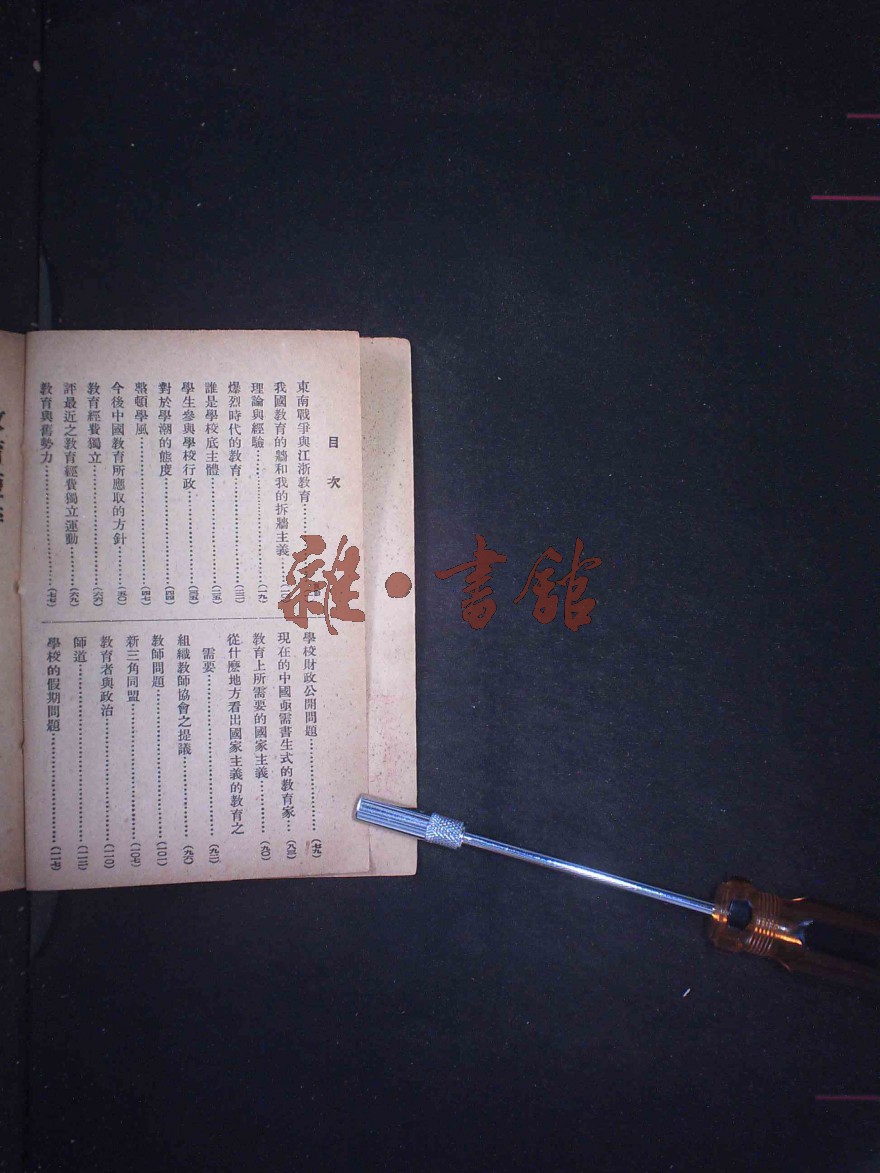 目次
東南戰爭與江浙教育
我國教育的牆和我的拆牆主義
理論與經驗……(一九)
爆烈時代的教育……(二二)
誰是學校底主體……(二五)
學生參與學校行政……(三五)
對於學潮的態度……(四四)
整頓學風……(四七)
今後中國教育所應取的方針……(五〇)
教育經費獨立……(六六)
評最近之教育經費獨立運動……(六九)
教育與舊勢力……(七七)
學校財政公開問題……(七九)
現在的中國亟需書生式的教育家……(八三)
教育上所需要的國家主義……(九〇)
從什麽地方看出國家主義的教育之
需要……(九二)
組織教師協會之提議……(九六)
教師問題……(一〇一)
新三角同盟……(一〇七)
教育者與政治……(一一〇)
師道……(一一三)
學校的假期問題……(一一七)
雜·書館